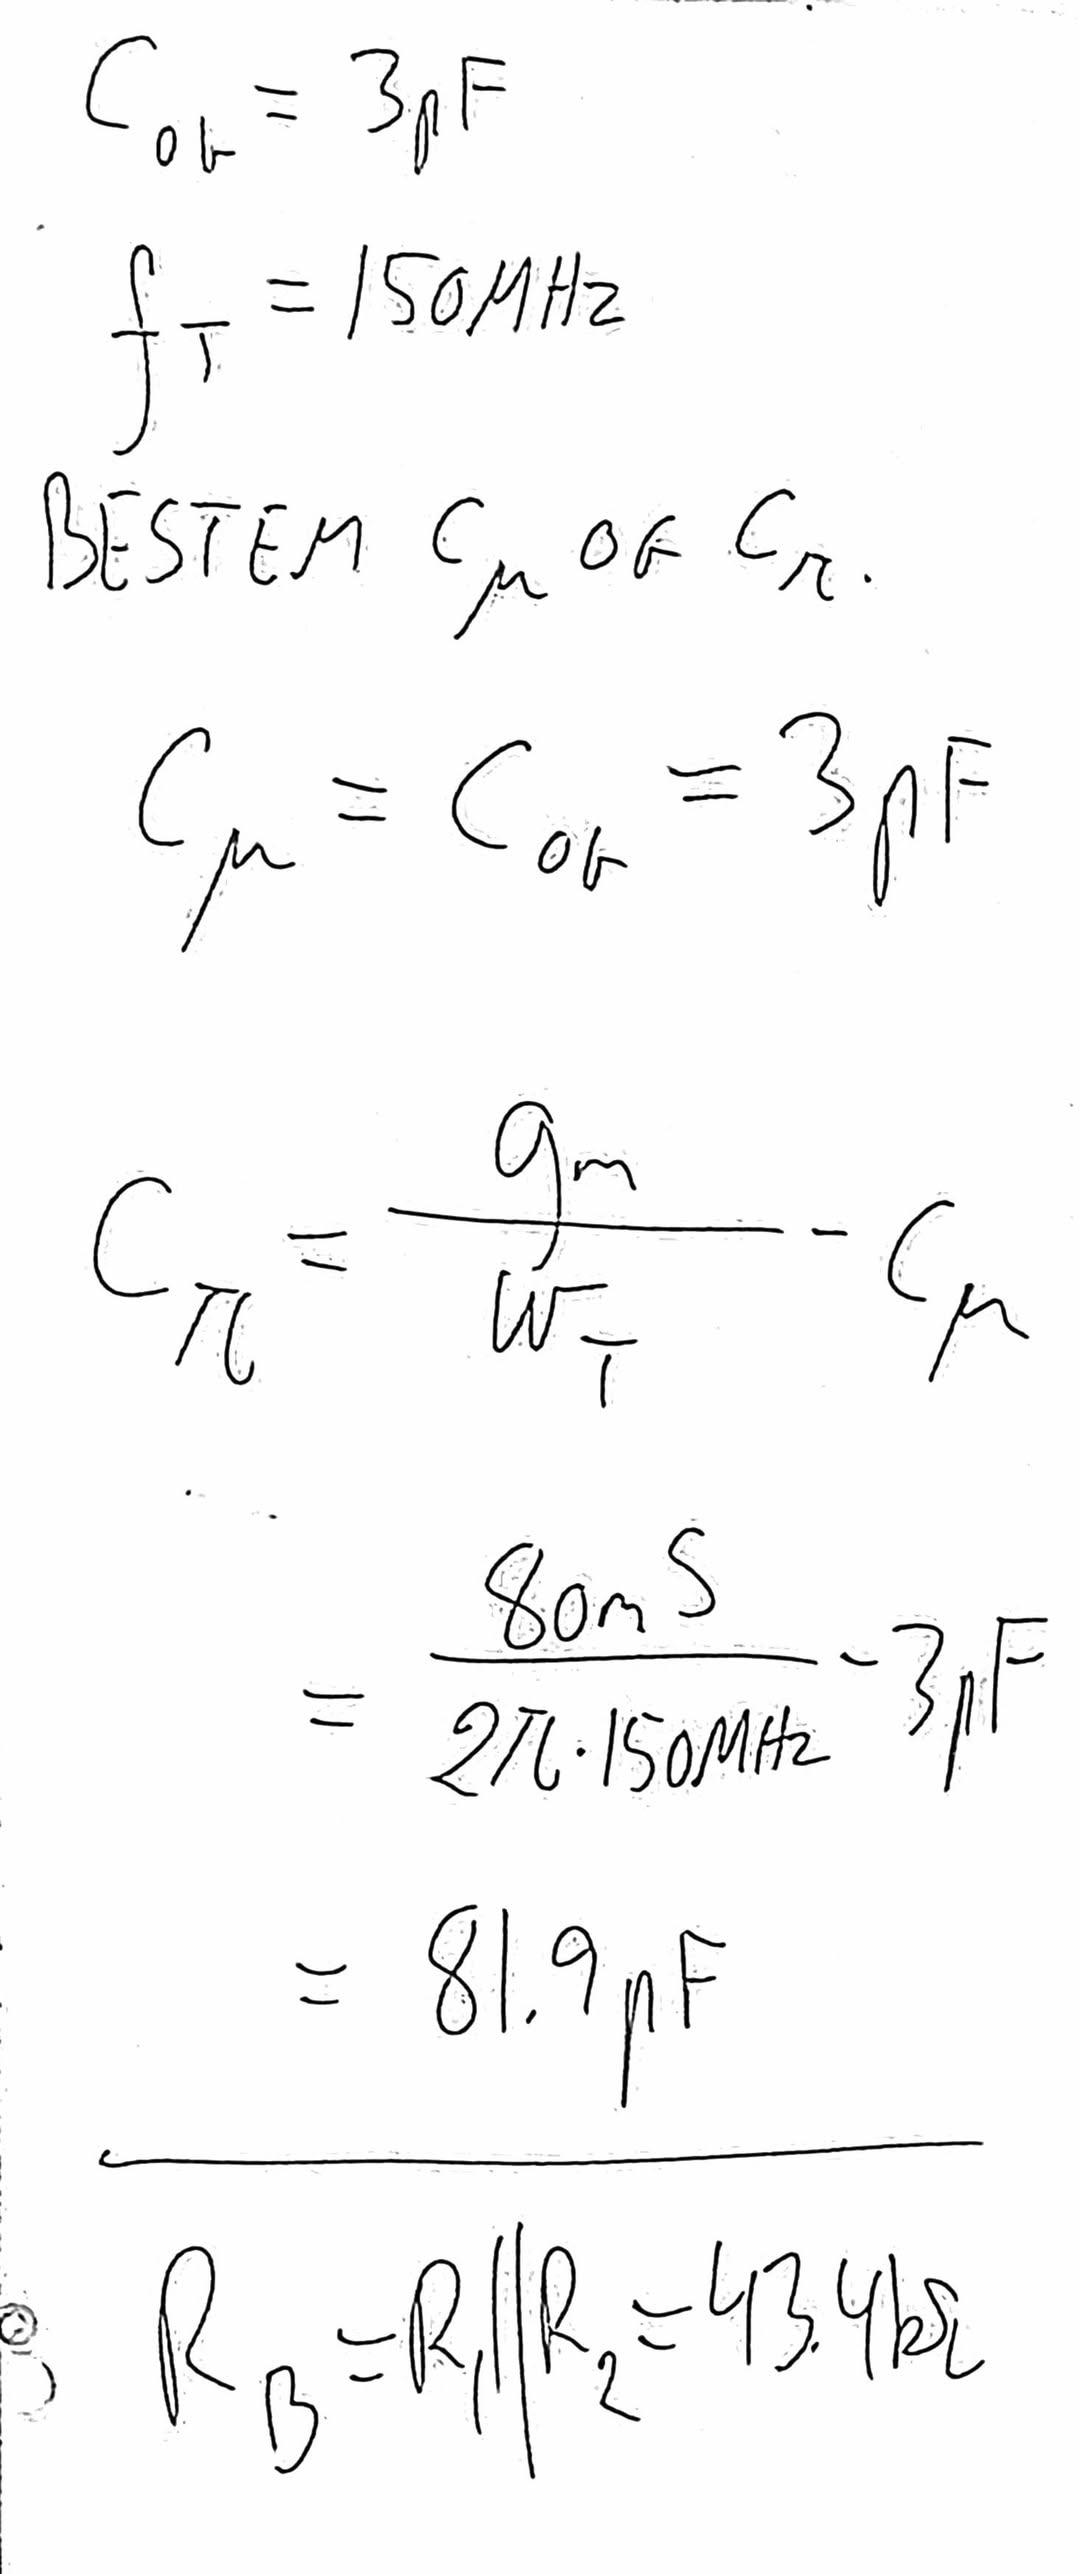 C_ob = 3pF
f_T = 150MHz
BESTEM C_μ OG C_π.
C_μ = C_ob = 3pF
C_π = g_m / W_T - C_μ
= 80mS / 2π·150MHz - 3pF
= 81.9pF
R_B = R_1 || R_2 = 43.4kΩ